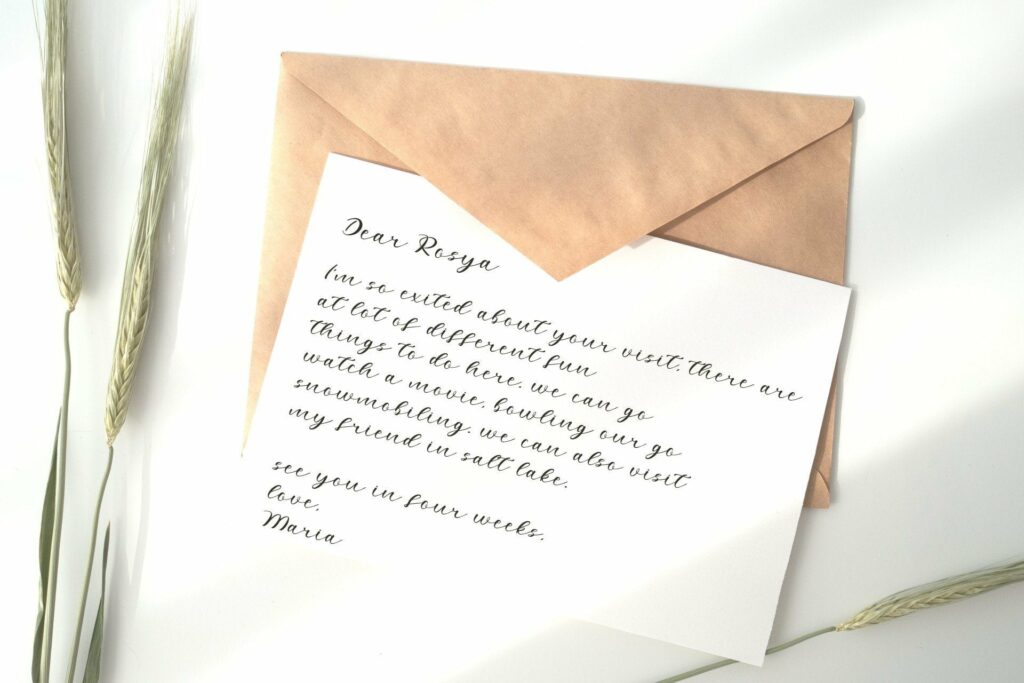 Dear Rosya
I'm so exited about your visit. there are
at lot of different fun
things to do here. we can go
watch a movie. bowling our go
snowmobiling. we can also visit
my friend in salt lake.
see you in four weeks.
love.
Maria